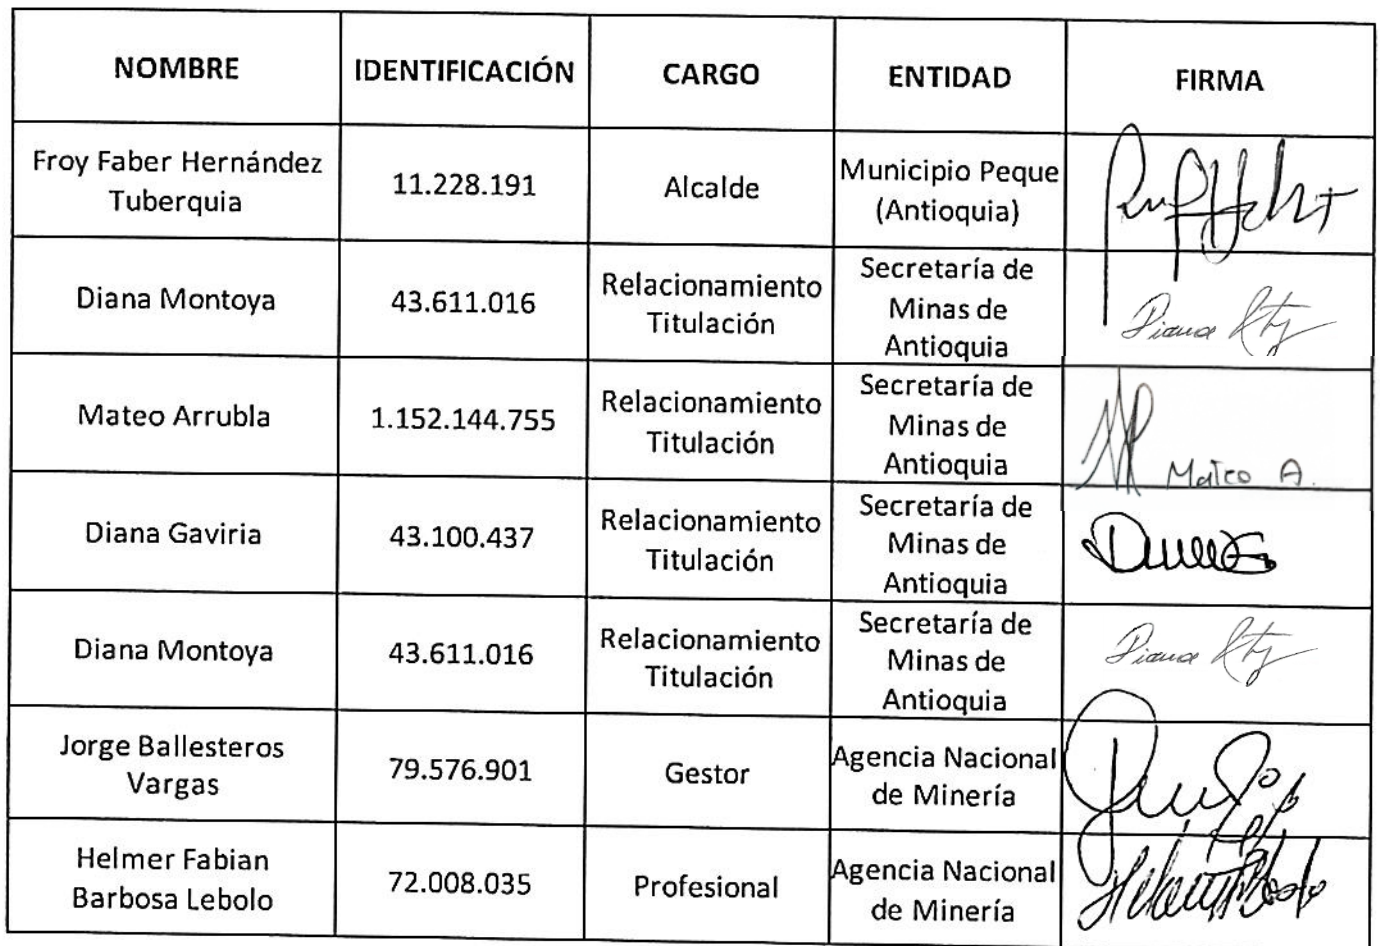 NOMBRE IDENTIFICACIÓN CARGO ENTIDAD FIRMA
Froy Faber Hernández
Tuberquia
11.228.191
Alcalde
Municipio Peque
(Antioquia)
Diana Montoya
43.611.016
Relacionamiento
Titulación
Secretaría de
Minas de
Antioquia
Diana
Mateo Arrubla
1.152.144.755
Relacionamiento
Titulación
Secretaría de
Minas de
Antioquia
Mateo A.
Diana Gaviria
43.100.437
Relacionamiento
Titulación
Secretaría de
Minas de
Antioquia
Diana Montoya
43.611.016
Relacionamiento
Titulación
Secretaría de
Minas de
Antioquia
Diana
Jorge Ballesteros
Vargas
79.576.901
Gestor
Agencia Nacional
de Minería
Helmer Fabian
Barbosa Lebolo
72.008.035
Profesional
Agencia Nacional
de Minería